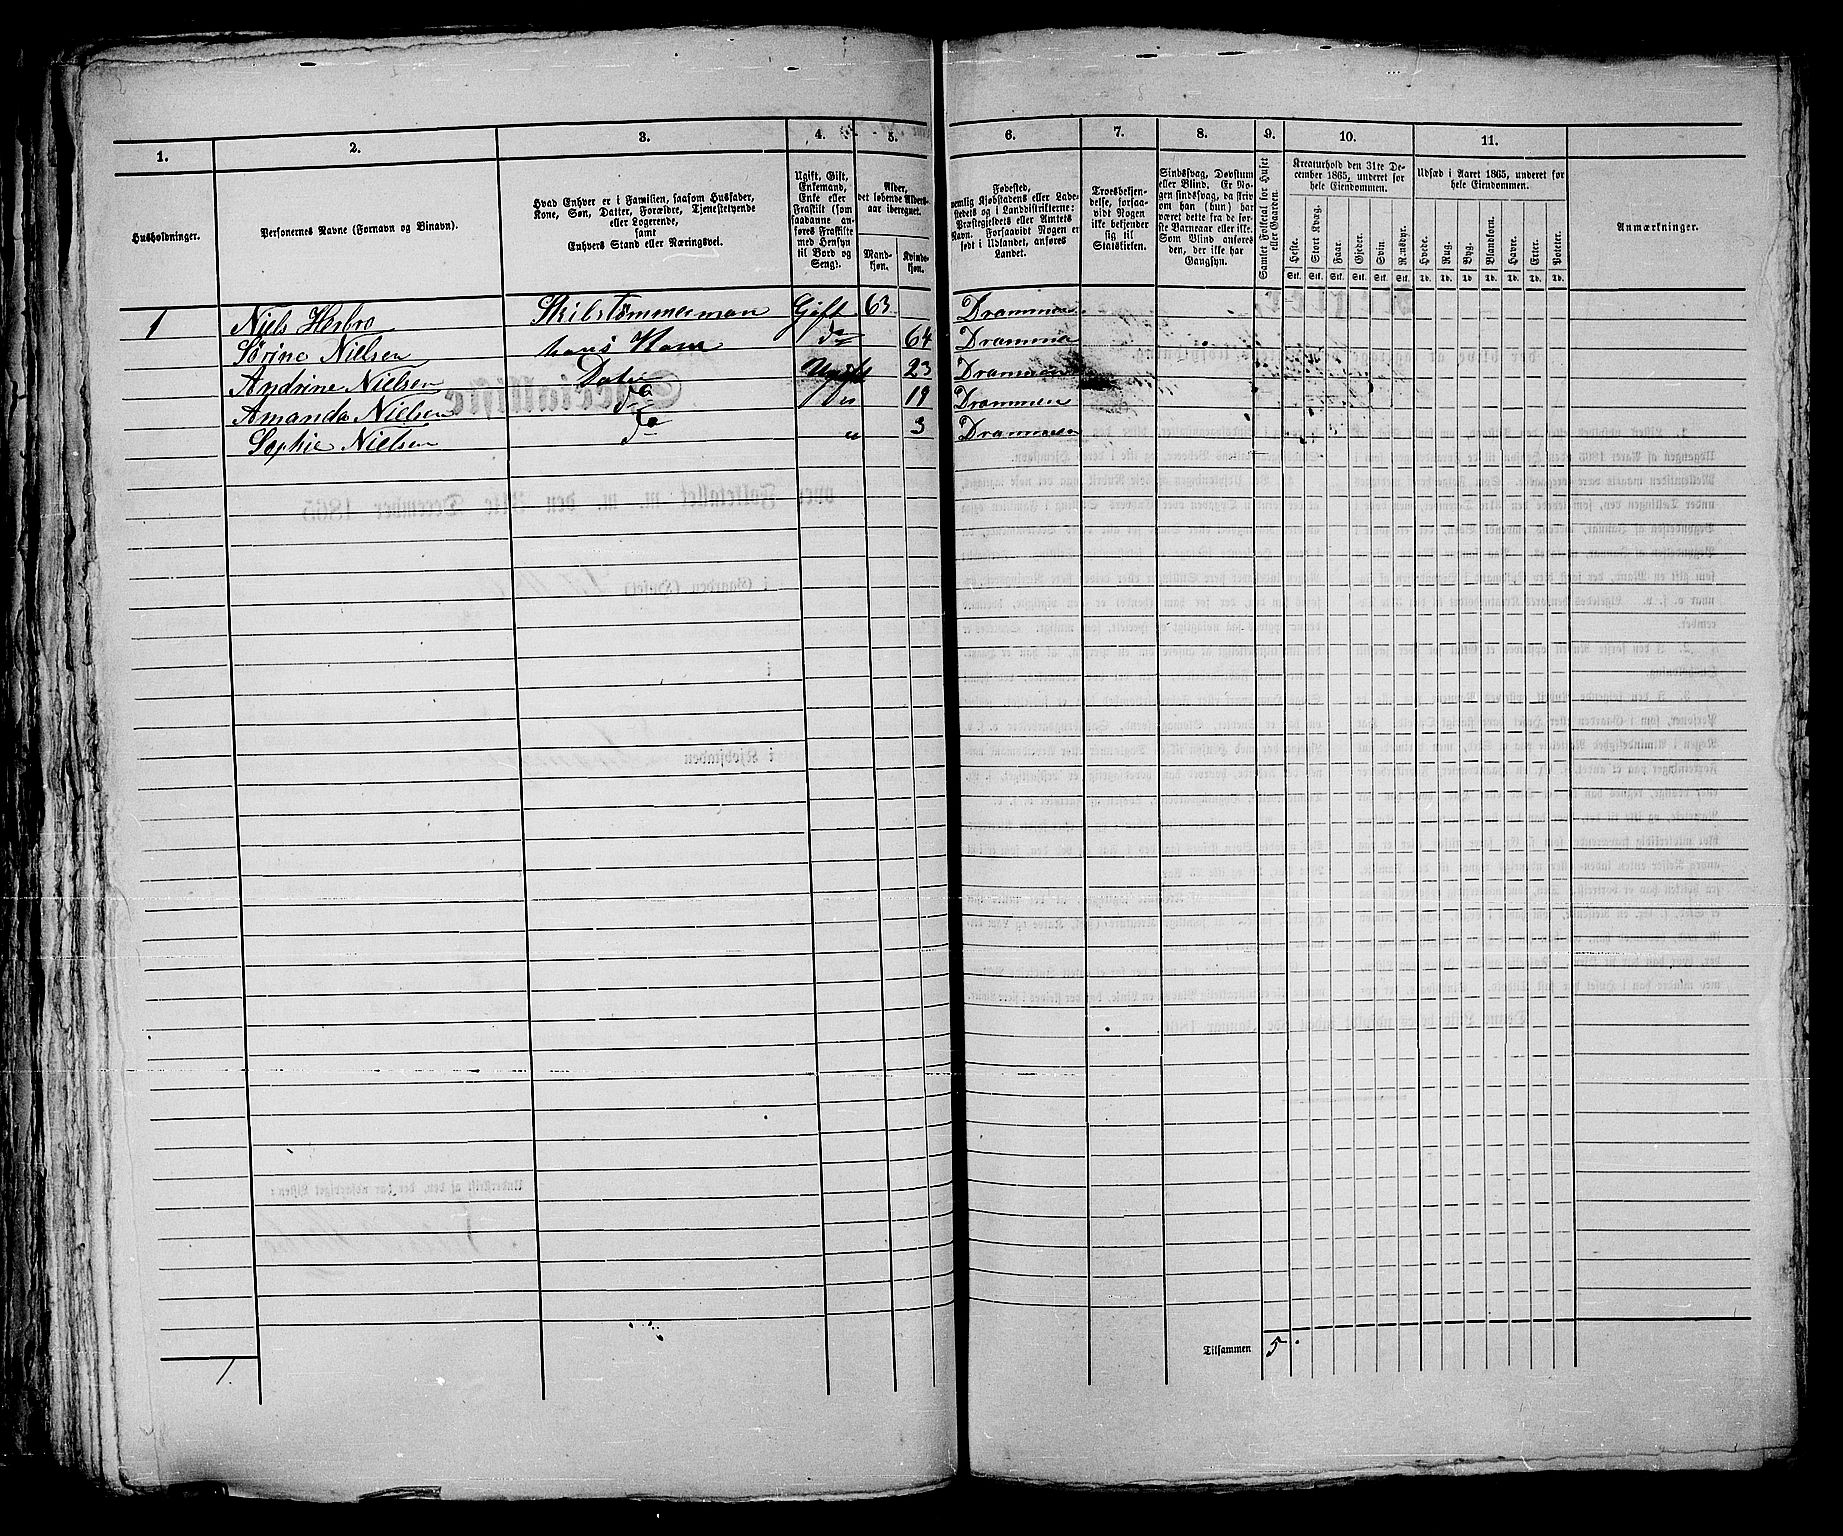 1. 2. 3. 4. 5. 6. 7. 8. 9. 10. 11.
Husholdninger.
Personernes Navne (Fornavn og Binavn).
Hvad Enhver er i Familien, saasom Husfader,
Kone, Søn, Datter, Forældre, Tjenestetyende
eller Logerende,
samt
Enhvers Stand eller Næringsvei.
Ugift, Gift,
Enkemand,
Enke eller
Fraskilt (som
saadanne an-
føres Fraskilte
med Hensyn
til Bord og
Seng).
Alder,
det løbende Alders-
aar iberegnet.
Mand-
kjøn.
Kvinde-
kjøn.
Fødested,
nemlig Kjøbstadens eller Lade-
stedets og i Landdistrikterne:
Præstegjeldets eller Amtets
Navn. Forsaavidt Nogen er
født i Udlandet, anføres
Landet.
Troesbekjen-
delse, forsaa-
vidt Nogen
ikke bekjender
sig til
Statskirken.
Sindssvag, Døvstum
eller Blind. Er No-
gen sindssvag, da skriv
om han (hun) har
været dette fra de før-
ste Barneaar eller ikke.
Som Blind anføres
den, der ikke har
Gangsyn.
Samlet Folketal for Huset
eller Gaarden.
Kreaturhold den 31te De-
cember 1865, underet for
hele Eiendommen.
Heste. Stort Kvæg. Faar. Gjeder. Svin. Rensdyr.
Stk. Stk. Stk. Stk. Stk. Stk.
Udsæd i Aaret 1865, underet for
hele Eiendommen.
Hvede. Rug. Byg. Blandkorn. Havre. Erter. Poteter.
Td. Td. Td. Td. Td. Td. Td.
Anmærkninger.
1 Niels Herbro Skibstömmerman Gift 63 Drammen
Sörine Nielsen hans Kone do 64 Drammen
Andrine Nielsen Dater Ugift 23 Drammen
Amanda Nielsen do do 19 Drammen
Sophie Nielsen do " 3 Drammen
Tilsammen 5
1.